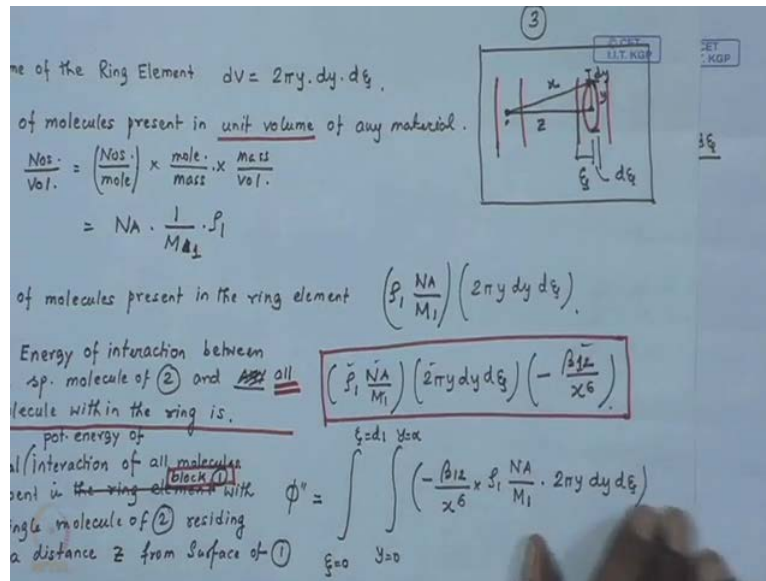 3
© CET
I.I.T. KGP
CET
. KGP
me of the Ring Element dV = 2πy. dy. dξ.
of molecules present in unit volume of any material.
Nos./Vol. = (Nos./mole) × mole./mass × mass/vol.
= NA · 1/M1 · ρ1
x
dy
y
z
ξ
dξ
dξ
of molecules present in the ring element (ρ1 NA/M1) (2πy dy dξ).
Energy of interaction between
sp. molecule of ② and all
lecule within the ring is.
(ρ1 NA/M1) (2πy dy dξ) (- β12/x6).
pot. energy of
al/interaction of all molecules
block ①
sent in the ring element with
ingle molecule of ② residing
a distance z from Surface of ①
φ" = ∫ξ=0 ξ=d1 ∫y=0 y=α (- β12/x6 × ρ1 NA/M1 · 2πy dy dξ)